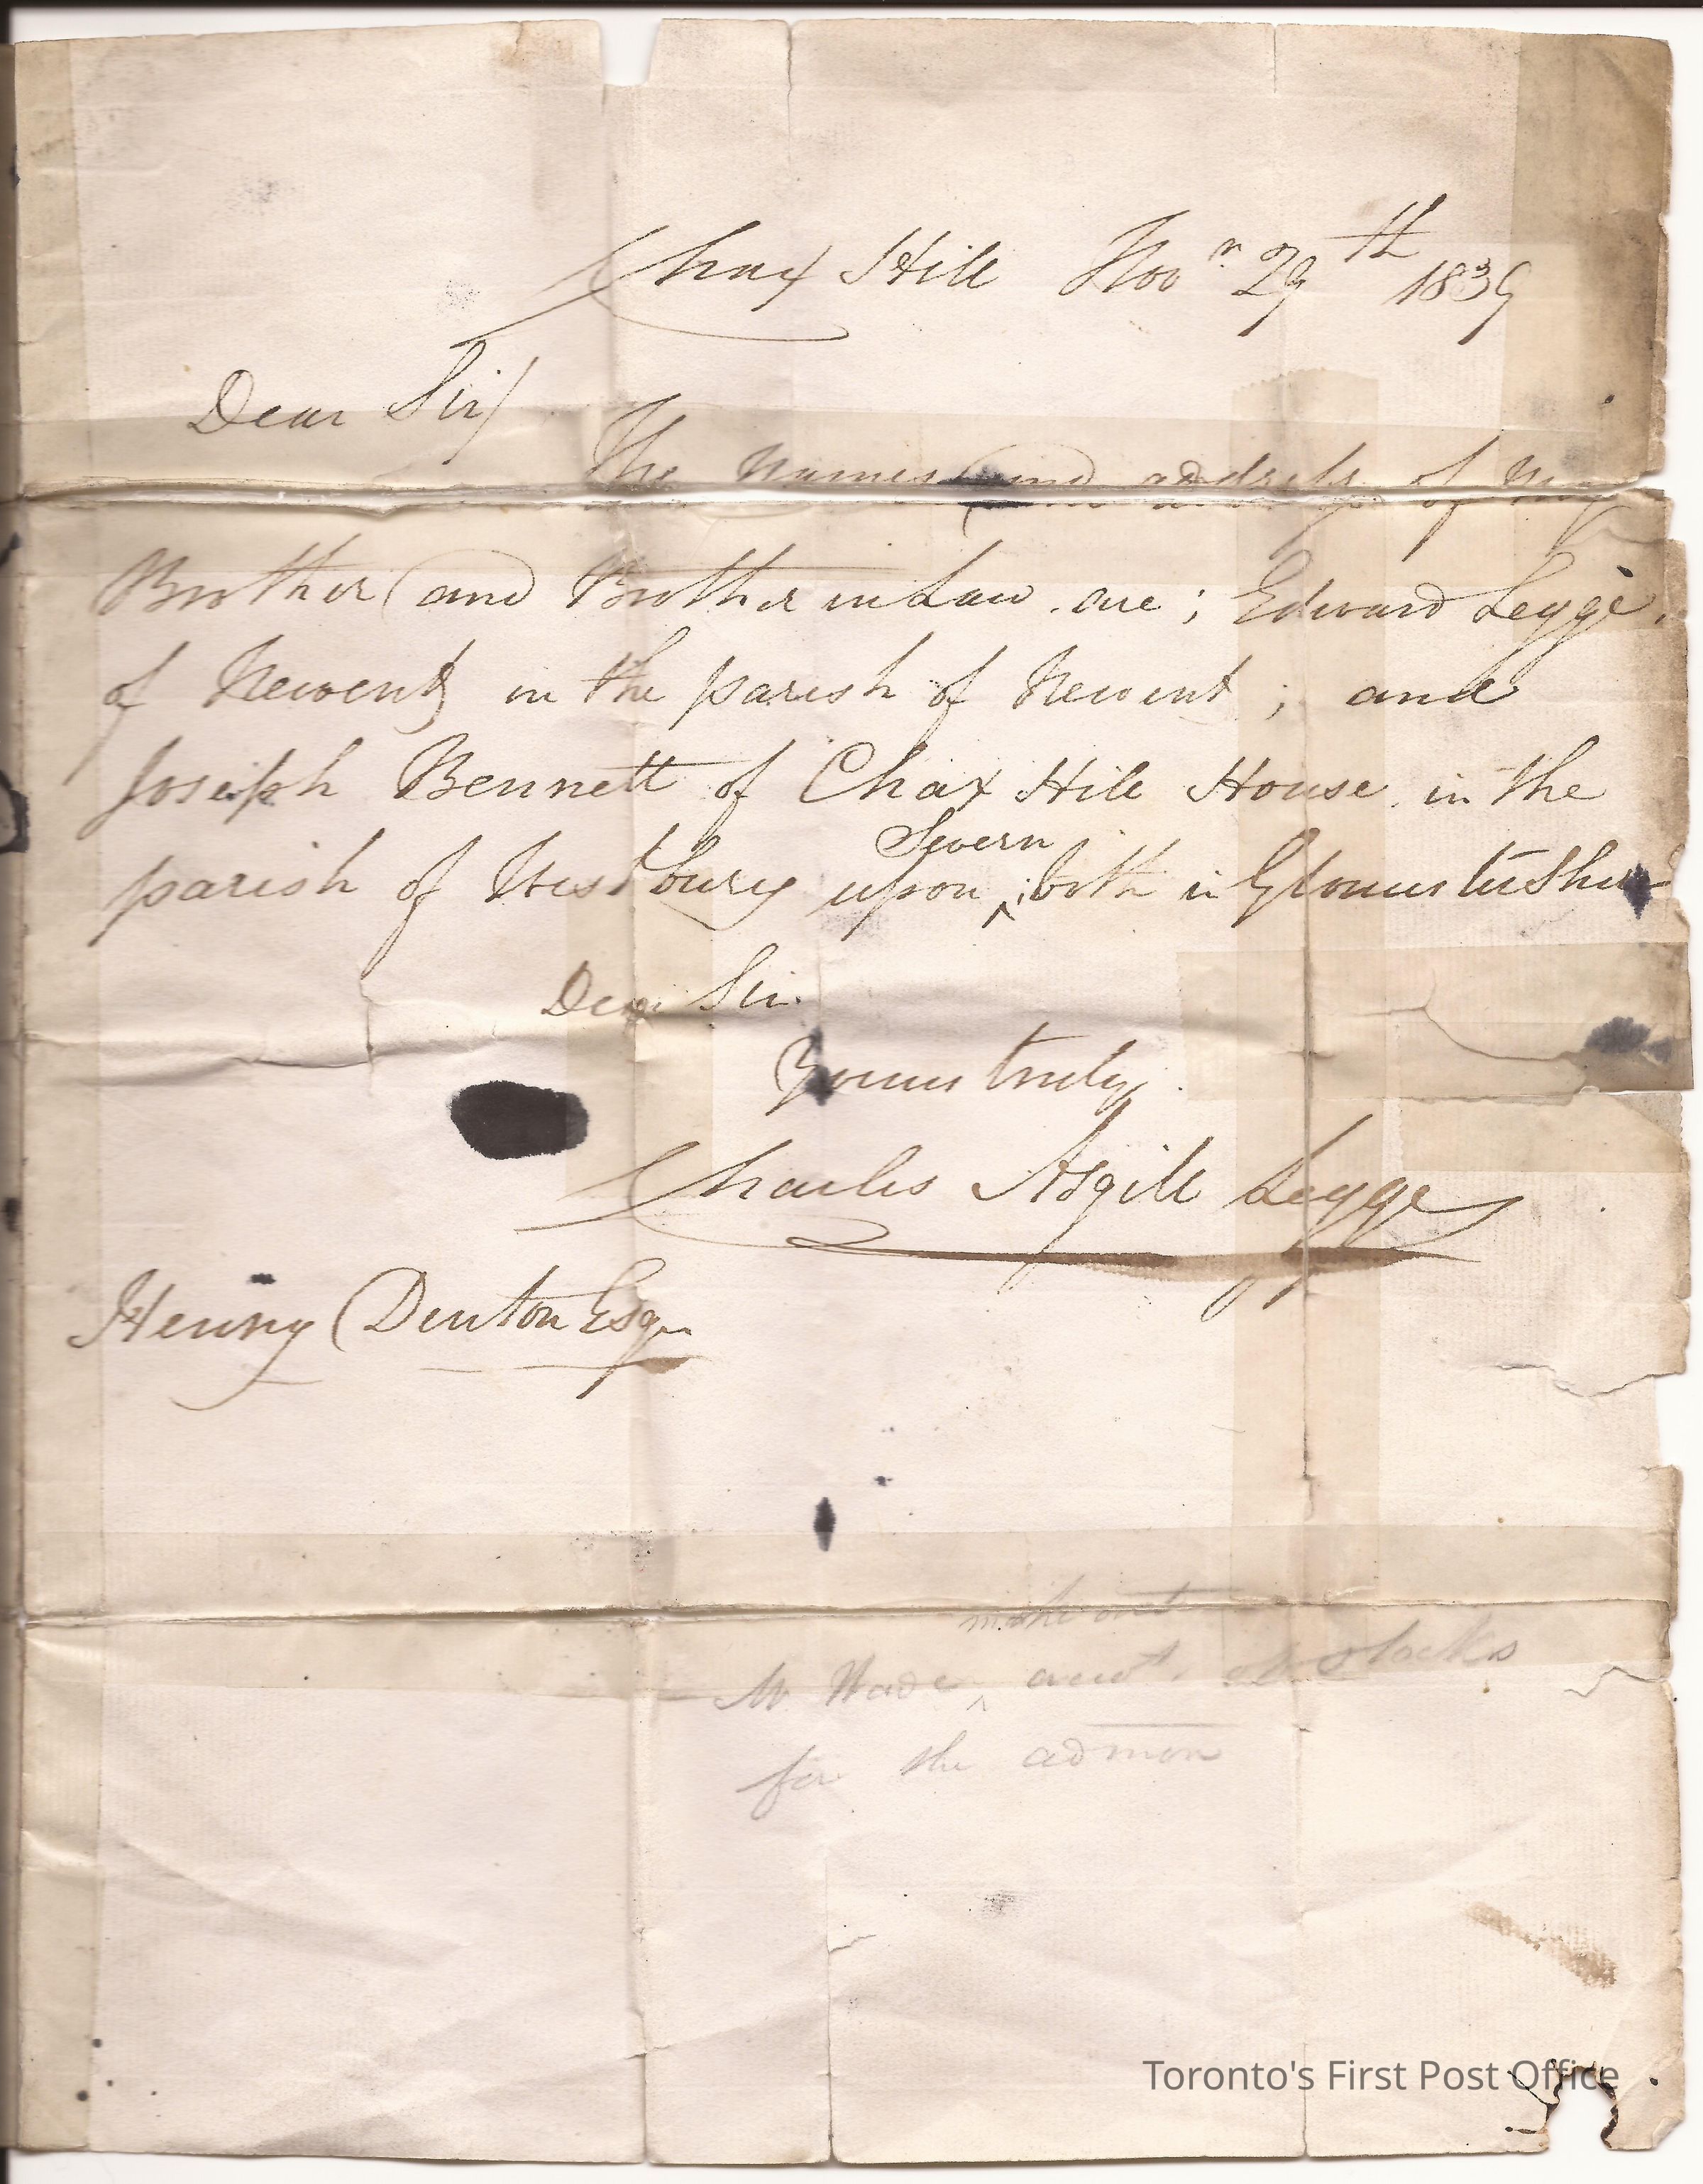 Chax Hill Novr. 29th 1839
Dear Sir
The Names and address of my
Brother and Brother in Law are; Edward Legge.
of Newent in the parish of Newent; and
Joseph Bennett of Chax Hill House in the
parish of Westbury upon Severn; both in Gloucestershire
Dear Sir
Yours truly.
Charles Asgill Legge
Henry Denton Esqr
make out
Mr Wade acct. of stocks
for the admon
Toronto's First Post Office